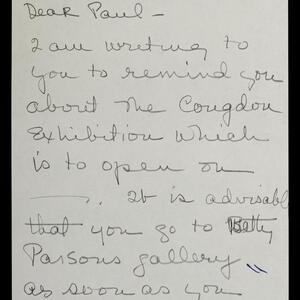 Dear Paul –
I am writing to
you to remind you
about The Congdon
Exhibition which
is to open on
——. It is advisabl
that you go to Betty
Parsons gallery
as soon as you